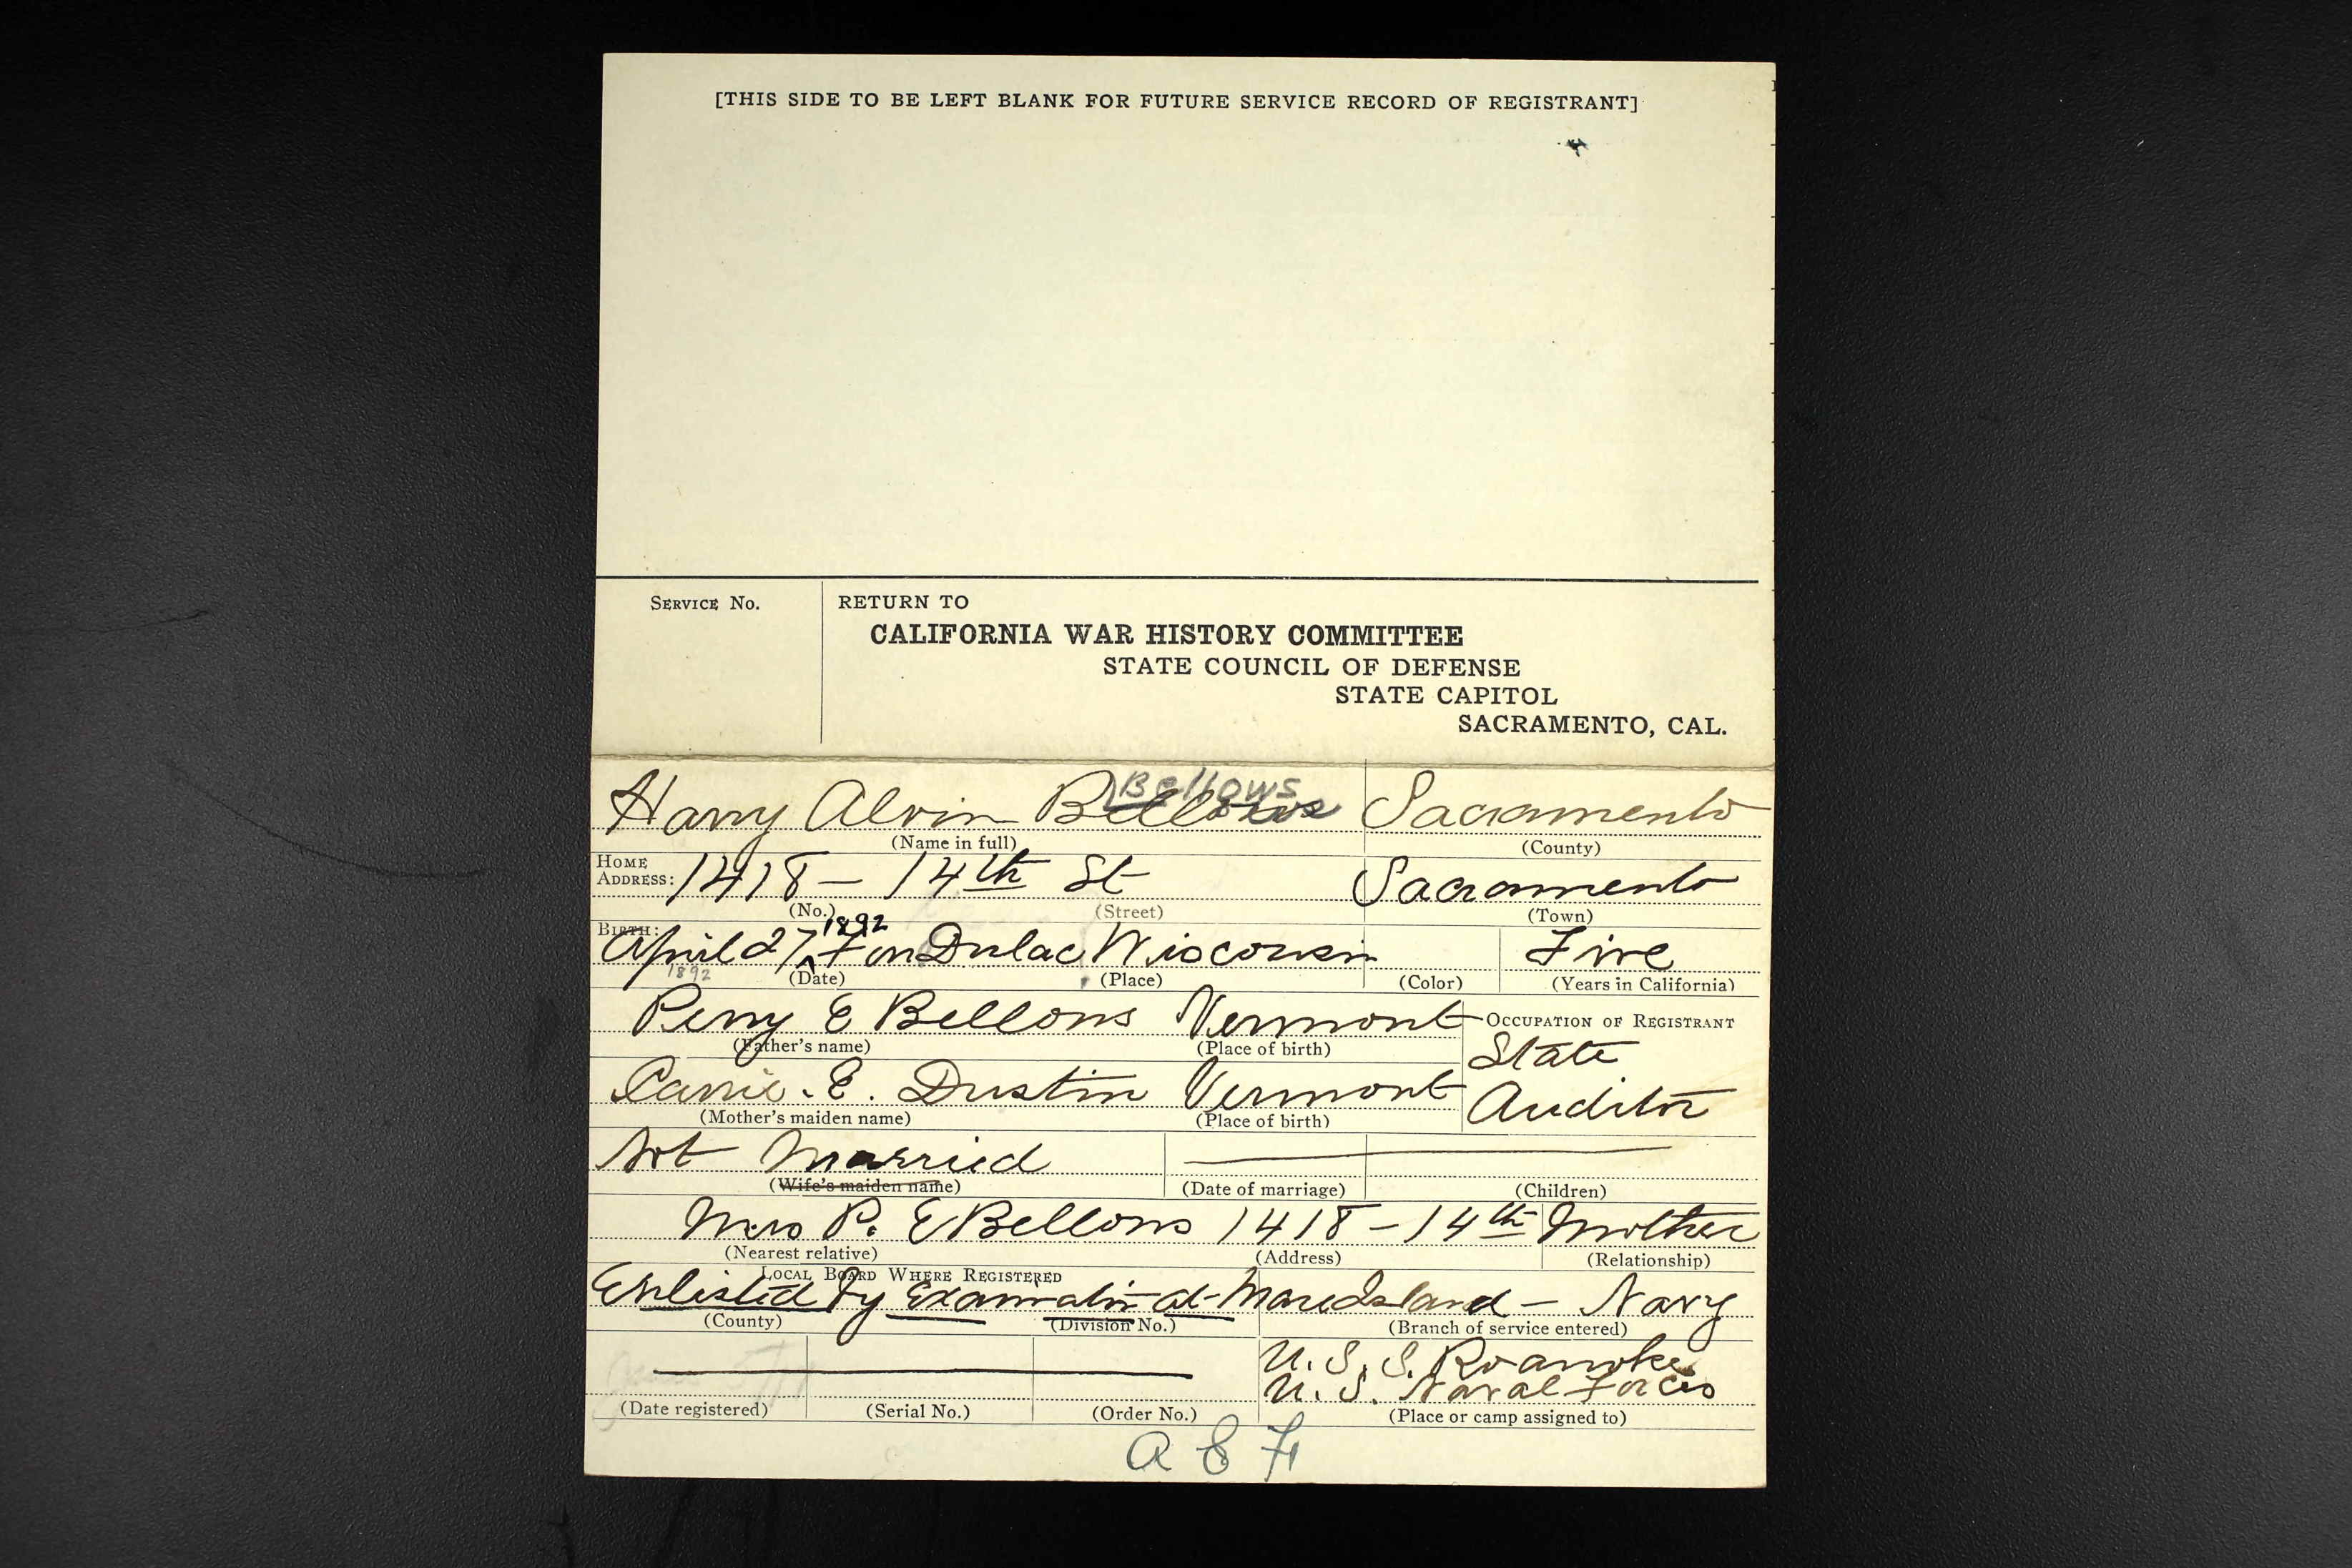 [THIS SIDE TO BE LEFT BLANK FOR FUTURE SERVICE RECORD OF REGISTRANT]
SERVICE NO.
RETURN TO
CALIFORNIA WAR HISTORY COMMITTEE
STATE COUNCIL OF DEFENSE
STATE CAPITOL
SACRAMENTO, CAL.
Bellows
Harry Alvin Bellows Sacramento
(Name in full) (County)
HOME ADDRESS: 1418 - 14th St Sacramento
(No.) (Street) (Town)
1892
BIRTH: April 27 ^ Fon Dulac Wisconsin Five
1892 (Date) (Place) (Color) (Years in California)
Perry E Bellows Vermont
(Father's name) (Place of birth)
OCCUPATION OF REGISTRANT
State
Auditor
Carrie. E. Dustin Vermont
(Mother's maiden name) (Place of birth)
Not Married
(Wife's maiden name) (Date of marriage) (Children)
Mrs P. E Bellows 1418 - 14th Mother
(Nearest relative) (Address) (Relationship)
LOCAL BOARD WHERE REGISTERED
Enlisted By Examination at Mare Island - Navy
(County) (Division No.) (Branch of service entered)
U. S. S. Roanoke
U. S. Naval Forces
(Date registered) (Serial No.) (Order No.) (Place or camp assigned to)
A E F